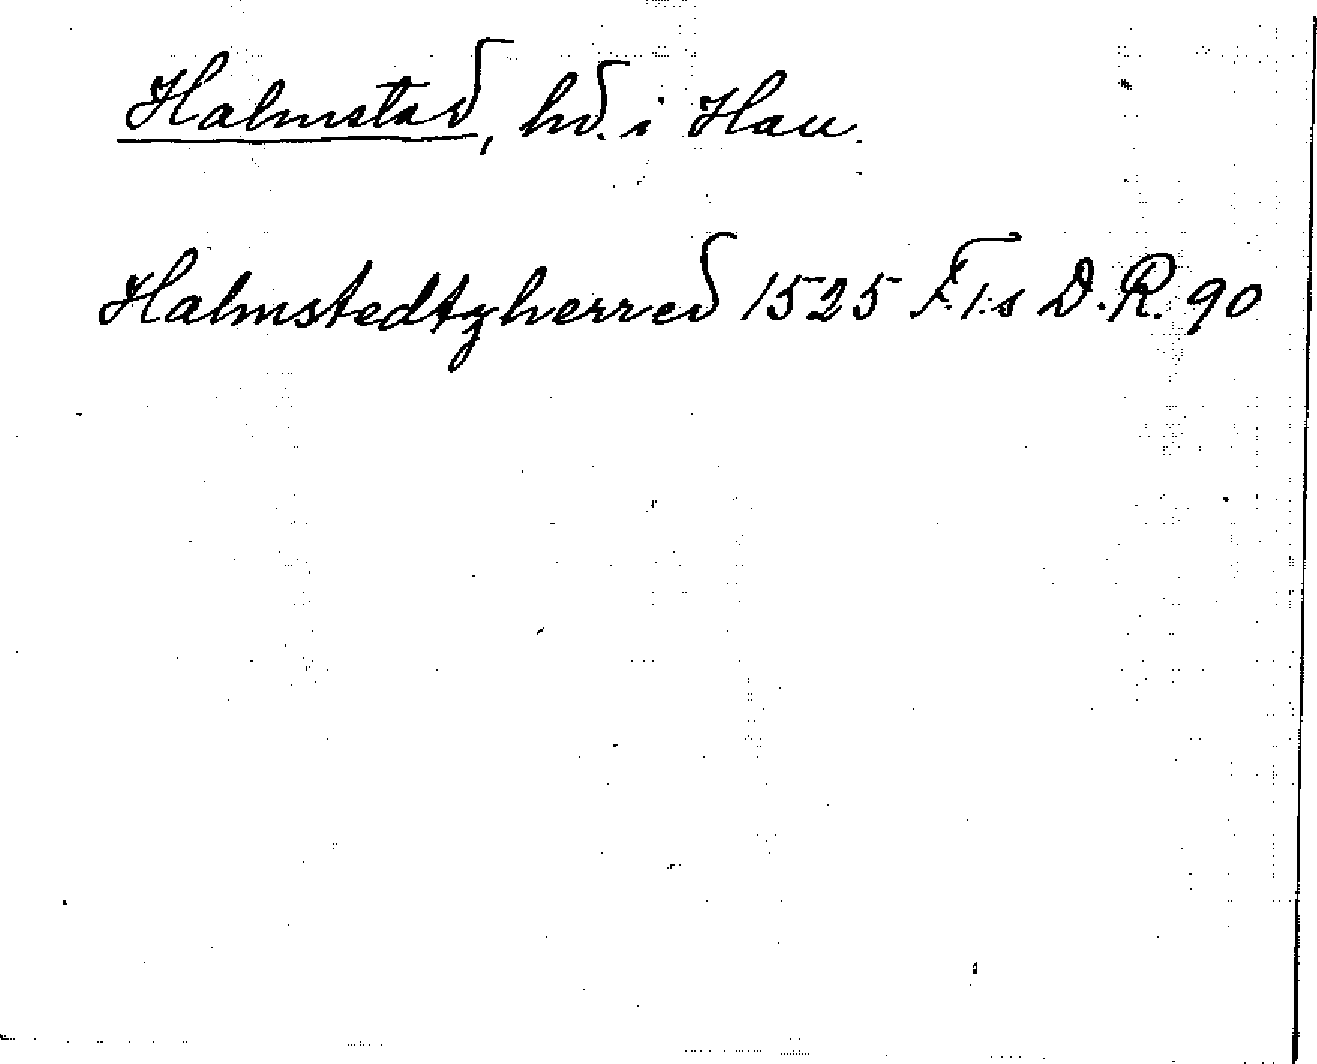 Halmstad, hd. i Hall.
Halmstedtzherred 1525 F.1.s D.R. 90